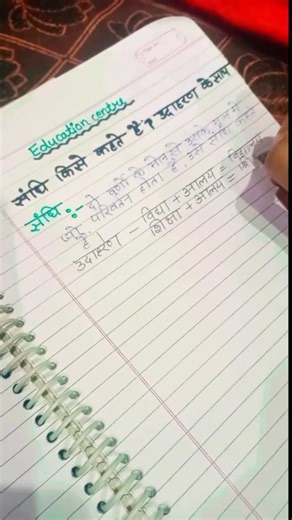 Education centre
संधि किसे कहते हैं? उदाहरण के साथ
संधि :- दो वर्णों के मेल से
जो परिवर्तन होता है, उसे संधि कहते
है।
उदाहरण - विद्या + आलय = विद्यालय
शिक्षा + आलय =